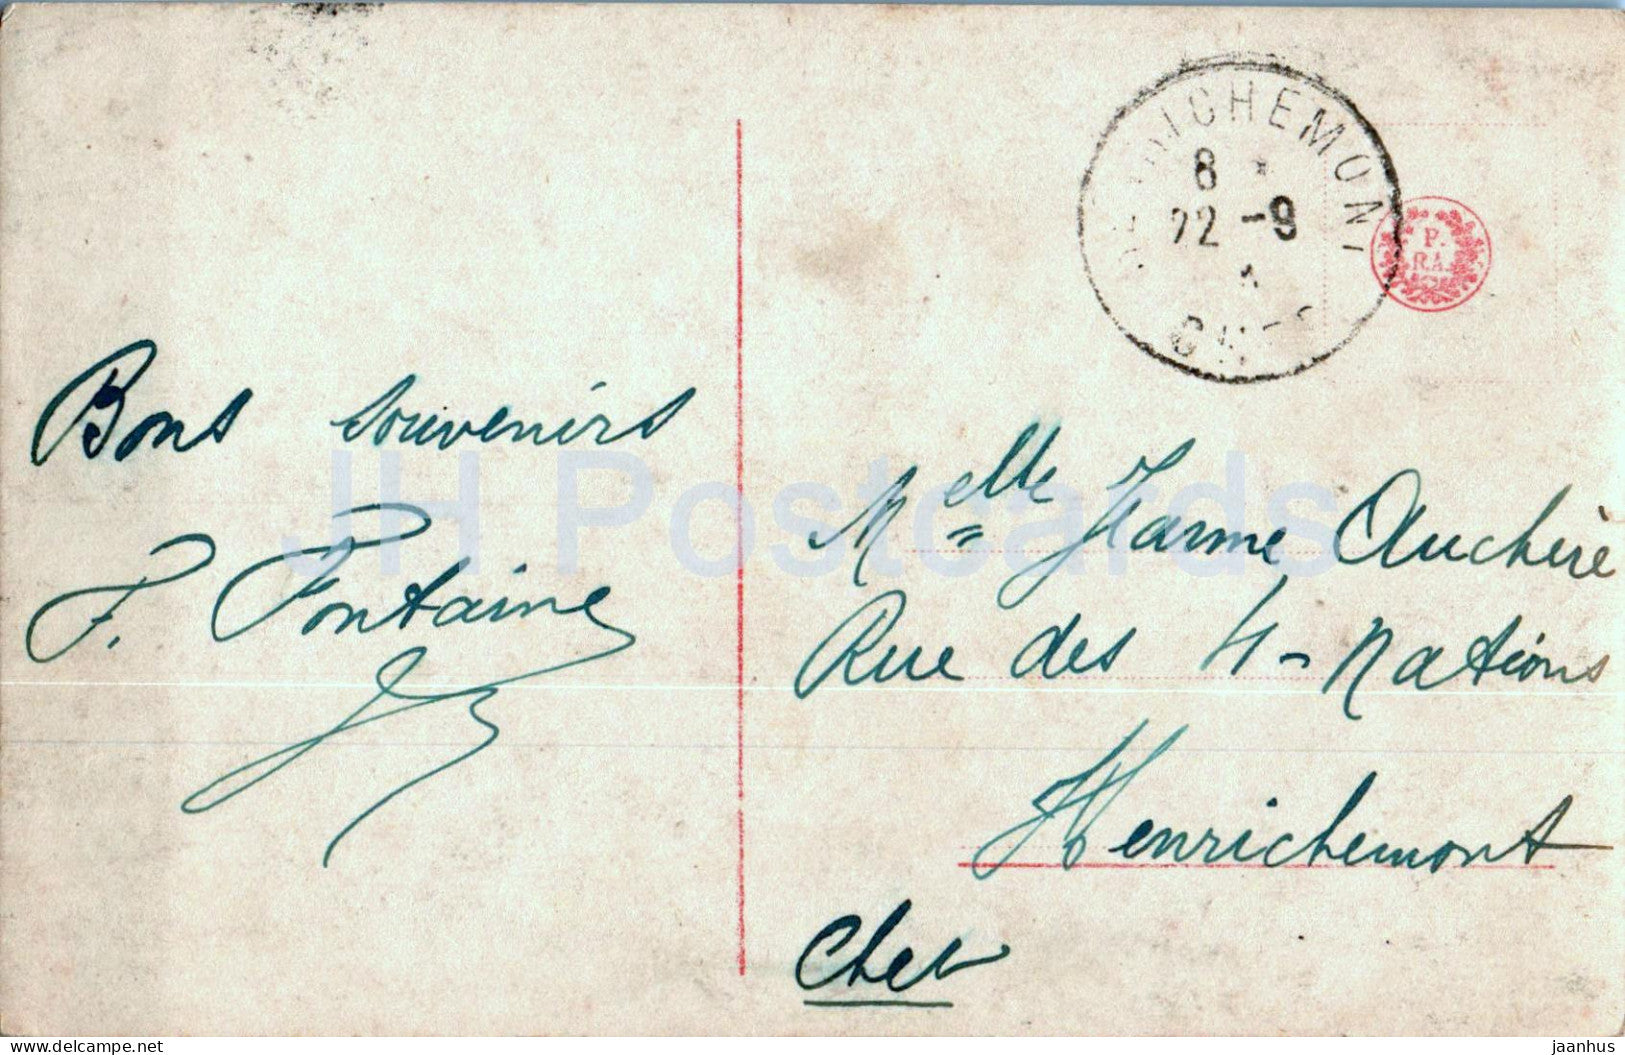 HENRICHEMONT
8
22 -9
CHER
P.
RA.
Bons souvenirs
F. Fontaine
Melle Jeanne Auchère
Rue des 4-Nations
Henrichemont
Cher
JH Postcards
delcampe.net
jaanhus